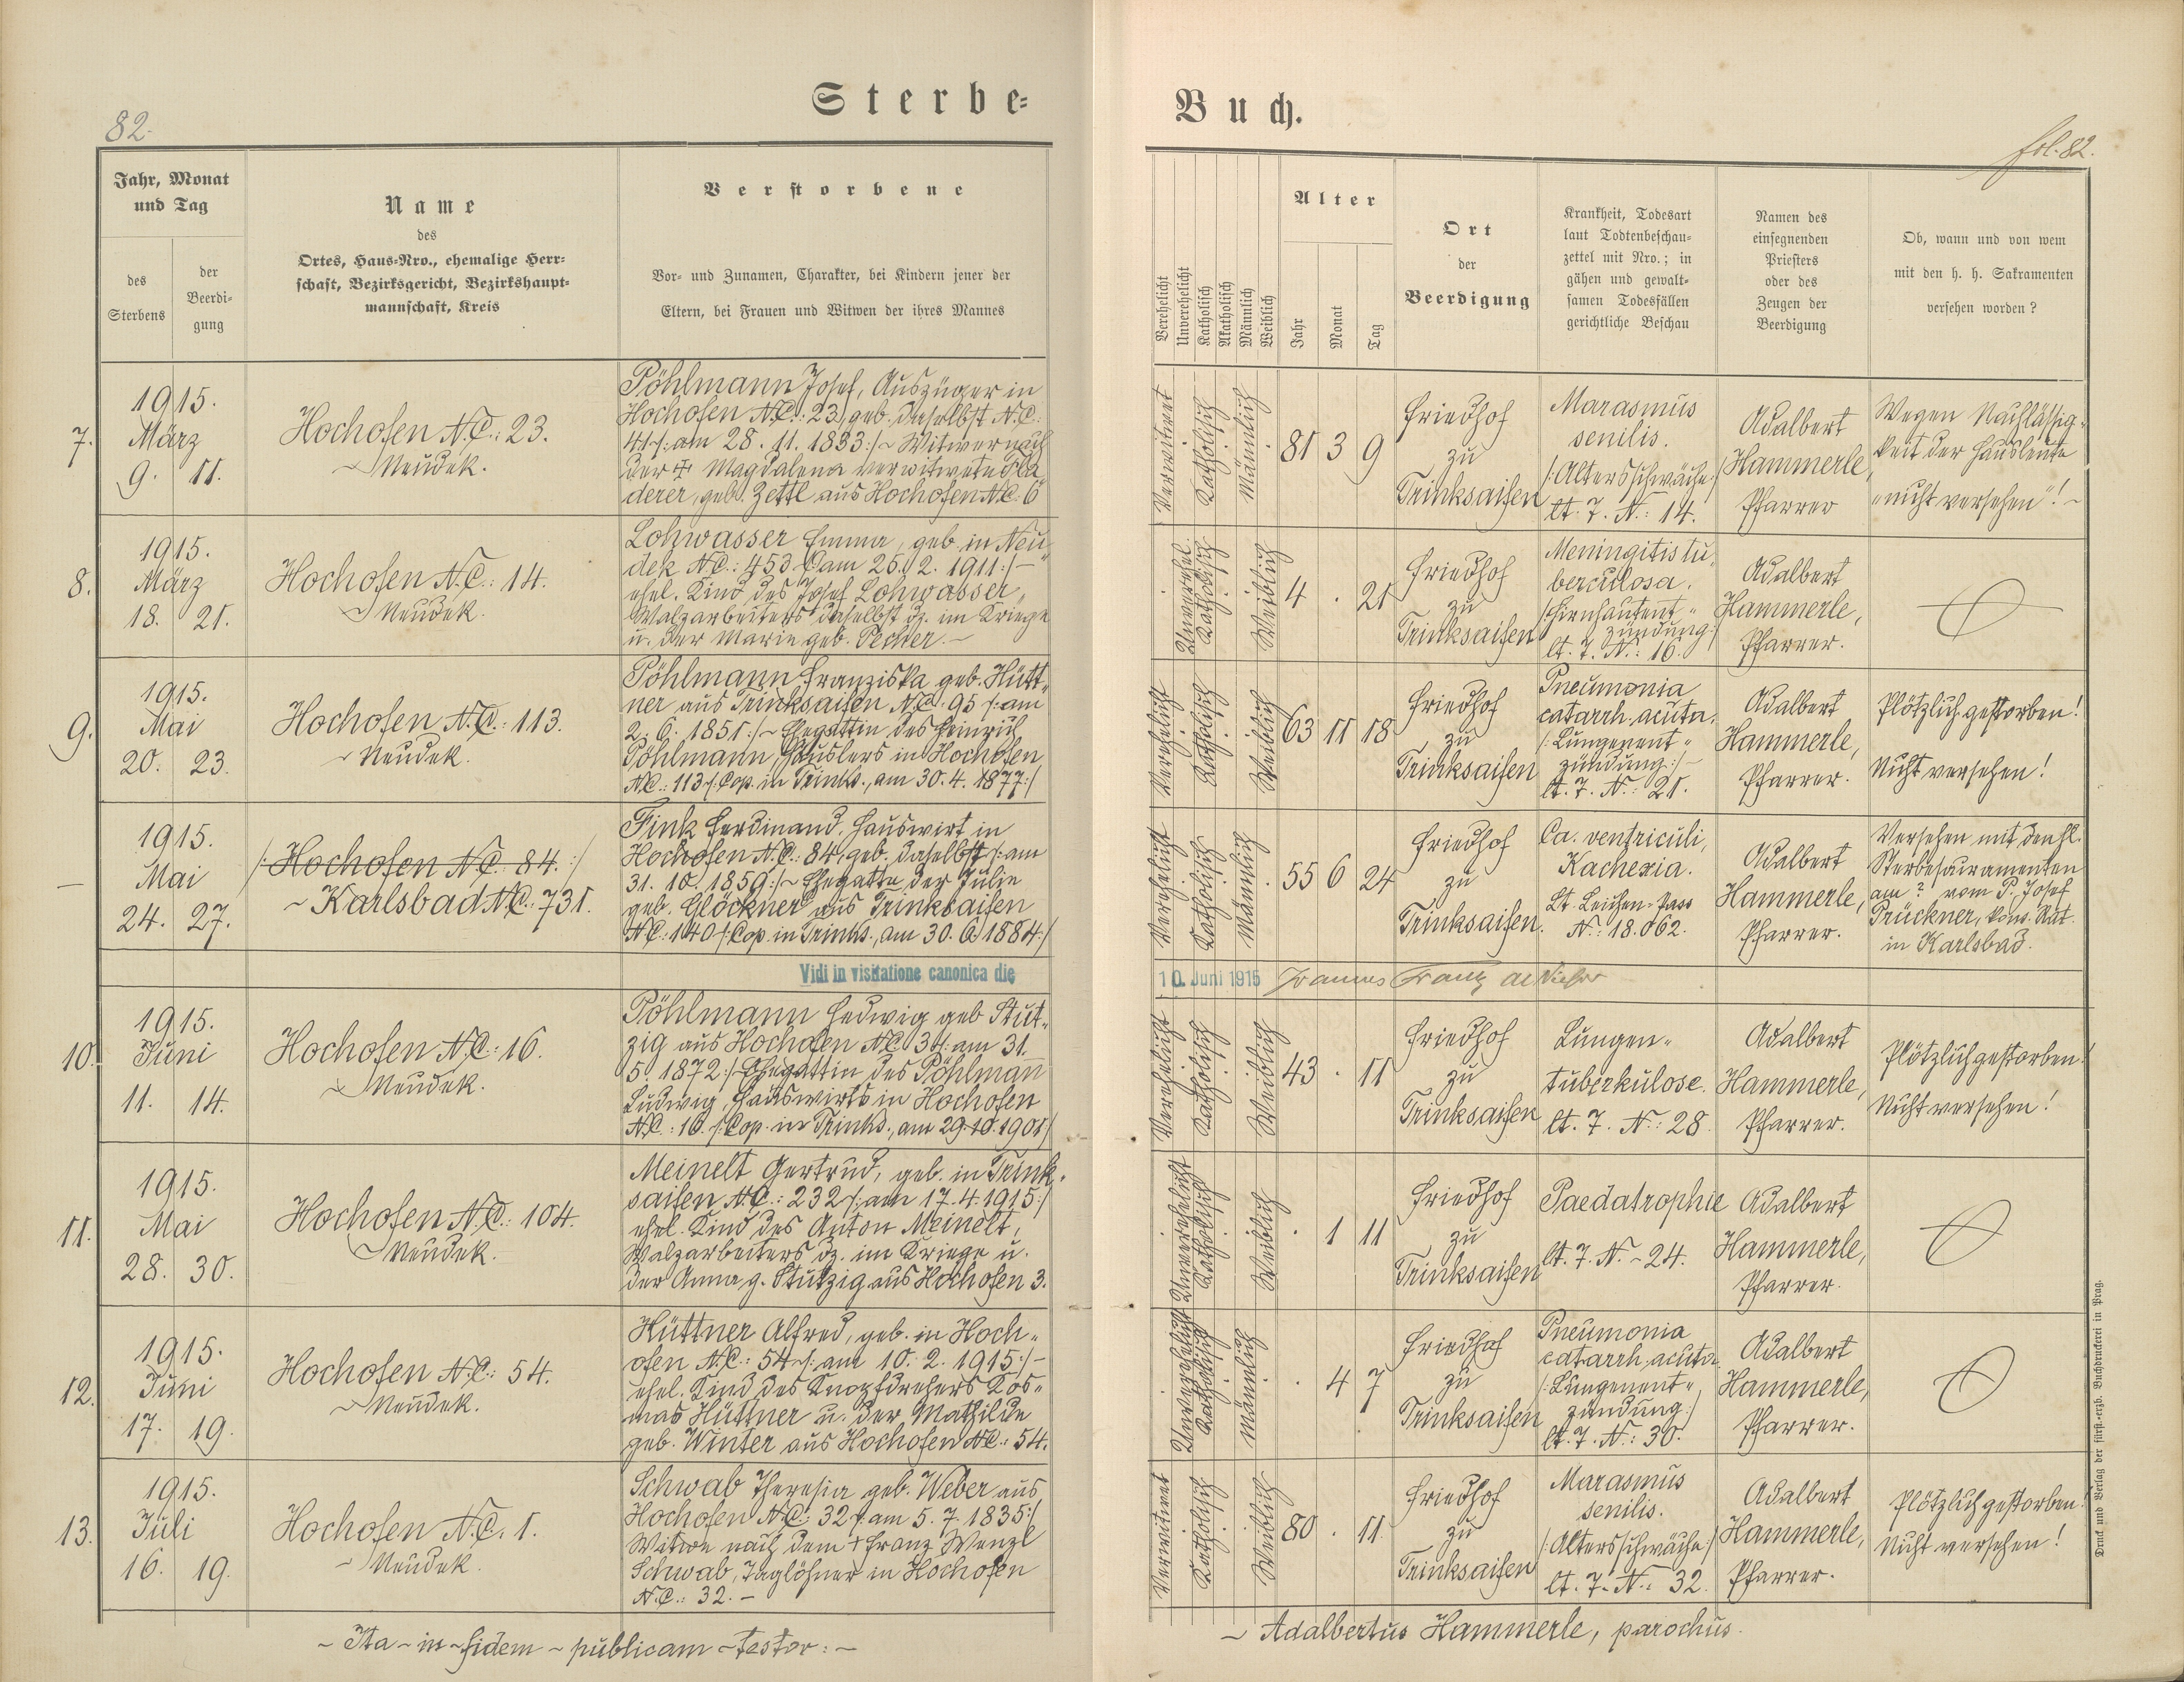 82.
Sterbe-
Buch.
fol. 82.
Jahr, Monat
und Tag
des
Sterbens
der
Beerdi-
gung
Name
des
Ortes, Haus-Nro., ehemalige Herr-
schaft, Bezirksgericht, Bezirkshaupt-
mannschaft, Kreis
Verstorbene
Vor- und Zunamen, Charakter, bei Kindern jener der
Eltern, bei Frauen und Witwen der ihres Mannes
Verehelicht
Unverehelicht
Katholisch
Akatholisch
Männlich
Weiblich
Alter
Jahr
Monat
Tag
Ort
der
Beerdigung
Krankheit, Todesart
laut Todtenbeschau-
zettel mit Nro.; in
gähen und gewalt-
samen Todesfällen
gerichtliche Beschau
Namen des
einsegnenden
Priesters
oder des
Zeugen der
Beerdigung
Ob, wann und von wem
mit den h. h. Sakramenten
versehen worden?
7.
1915.
März
9. 11.
Hochofen N.C.: 23.
~ Neudek.
Pöhlmann Josef, Auszüger in
Hochofen N.C.: 23, geb. daselbst N.C.
41 /: am 28. 11. 1833 :/ ~ Witwer nach
der † Magdalena verwitwete Fla-
derer, geb. Zettl aus Hochofen N.C. 6
Verwitwet
Katholisch
Männlich
81 3 9
Friedhof
zu
Trinksaifen
Marasmus
senilis.
/: Altersschwäche :/
lt. T. N.: 14.
Adalbert
Hammerle,
Pfarrer
Wegen Nachlässig-
keit der Hausleute
"nicht versehen"! ~
8.
1915.
März
18. 21.
Hochofen N.C.: 14.
~ Neudek.
Lohwasser Emma, geb. in Neu-
dek N.C.: 453 /: am 25. 2. 1911 :/ ~
ehel. Kind des Josef Lohwasser,
Walzarbeiters daselbst dz. im Kriege
u. der Marie geb. Pecher. ~
Unverehel.
Katholisch
Weiblich
4 . 21
Friedhof
zu
Trinksaifen
Meningitis tu-
berculosa.
/: Hirnhautent-
zündung :/
lt. T. N.: 16.
Adalbert
Hammerle,
Pfarrer.
9.
1915.
Mai
20. 23.
Hochofen N.C.: 113.
~ Neudek.
Pöhlmann Franziska geb. Hütt-
ner aus Trinksaifen N.C. 95 /: am
2. 6. 1851 :/ ~ Ehegattin des Heinrich
Pöhlmann, Häuslers in Hochofen
N.C.: 113 /: Cop. in Trinks., am 30. 4. 1877 :/
Verehelicht
Katholisch
Weiblich
63 11 18
Friedhof
zu
Trinksaifen
Pneumonia
catarrh. acuta.
/: Lungenent-
zündung :/ ~
lt. T. N.: 21.
Adalbert
Hammerle,
Pfarrer.
Plötzlich gestorben!
Nicht versehen!
—
1915.
Mai
24. 27.
/: Hochofen N.C. 84. :/
~ Karlsbad N.C. 731.
Fink Ferdinand, Hauswirt in
Hochofen N.C.: 84, geb. daselbst /: am
31. 10. 1859 :/ ~ Ehegatte der Julie
geb. Glöckner aus Trinksaifen
N.C.: 140 /: Cop. in Trinks., am 30. 6. 1884 :/
Verehelicht
Katholisch
Männlich
55 6 24
Friedhof
zu
Trinksaifen.
Ca. ventriculi,
Kachexia.
Lt. Leichen-Pass
N.: 18.062.
Adalbert
Hammerle,
Pfarrer.
Versehen mit den hl.
Sterbesakramenten
am ? vom P. Josef
Prückner, kons. Rat.
in Karlsbad.
Vidi in visitatione canonica die
10. Juni 1915
10.
1915.
Juni
11. 14.
Hochofen N.C. 16.
~ Neudek.
Pöhlmann Hedwig geb. Stut-
zig aus Hochofen N.C. 3 /: am 31.
5. 1872 :/ ~ Ehegattin des Pöhlmann
Ludwig, Hauswirts in Hochofen
N.C.: 16. /: Cop. in Trinks., am 29. 10. 1901 :/
Verehelicht
Katholisch
Weiblich
43 . 11
Friedhof
zu
Trinksaifen
Lungen-
tuberkulose.
lt. T. N.: 28.
Adalbert
Hammerle,
Pfarrer.
Plötzlich gestorben!
Nicht versehen!
11.
1915.
Mai
28. 30.
Hochofen N.C.: 104.
~ Neudek.
Meinelt Gertrud, geb. in Trink-
saifen N.C.: 232 /: am 17. 4. 1915 :/
ehel. Kind des Anton Meinelt,
Walzarbeiters dz. im Kriege u.
der Anna g. Stutzig aus Hochofen 3.
Unverehelicht
Katholisch
Weiblich
. 1 11
Friedhof
zu
Trinksaifen
Paedatrophie
lt. T. N. ~ 24.
Adalbert
Hammerle,
Pfarrer.
12.
1915.
Juni
17. 19.
Hochofen N.C.: 54.
~ Neudek.
Hüttner Alfred, geb. in Hoch-
ofen N.C.: 54 /: am 10. 2. 1915 :/ ~
ehel. Kind des Knopfdrehers Kos-
mas Hüttner u. der Mathilde
geb. Winter aus Hochofen N.C.: 54.
Unverehelicht
Katholisch
Männlich
. 4 7
Friedhof
zu
Trinksaifen
Pneumonia
catarrh. acuta
/: Lungenent-
zündung :/
lt. T. N.: 30.
Adalbert
Hammerle,
Pfarrer.
13.
1915.
Juli
16. 19.
Hochofen N.C. 1.
~ Neudek.
Schwab Theresia geb. Weber aus
Hochofen N.C. 32 /: am 5. 7. 1835 :/
Witwe nach dem † Franz Wenzl
Schwab, Taglöhner in Hochofen
N.C.: 32. ~
Verwitwet
Katholisch
Weiblich
80 . 11
Friedhof
zu
Trinksaifen
Marasmus
senilis.
/: Altersschwäche :/
lt. T. N.: 32.
Adalbert
Hammerle,
Pfarrer.
Plötzlich gestorben!
Nicht versehen!
~ Ita ~ in ~ fidem ~ publicam ~ testor: ~
~ Adalbertus Hammerle, parochus.
Druck und Verlag der fürst.-erzb. Buchdruckerei in Prag.